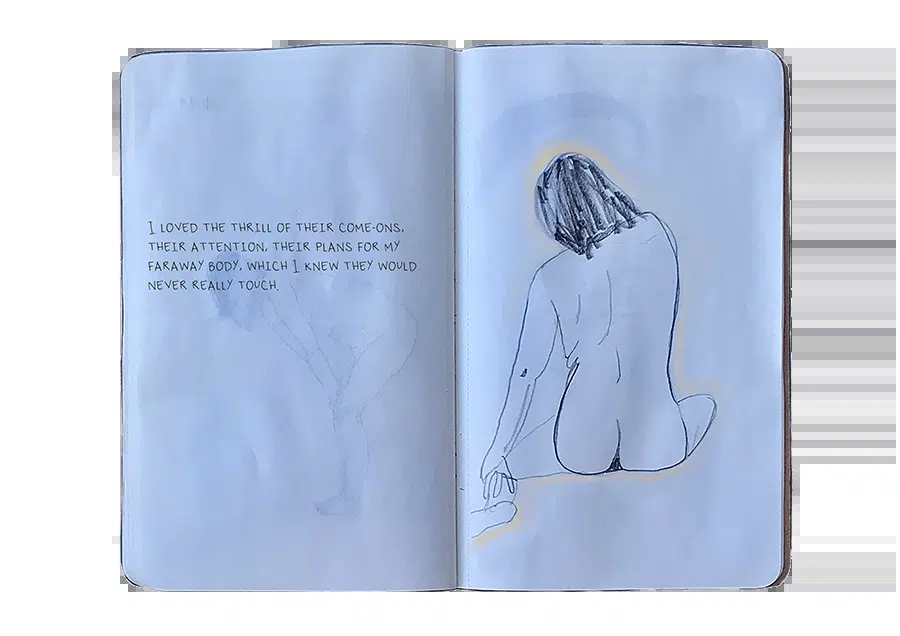 I LOVED THE THRILL OF THEIR COME-ONS,
THEIR ATTENTION, THEIR PLANS FOR MY
FARAWAY BODY, WHICH I KNEW THEY WOULD
NEVER REALLY TOUCH.